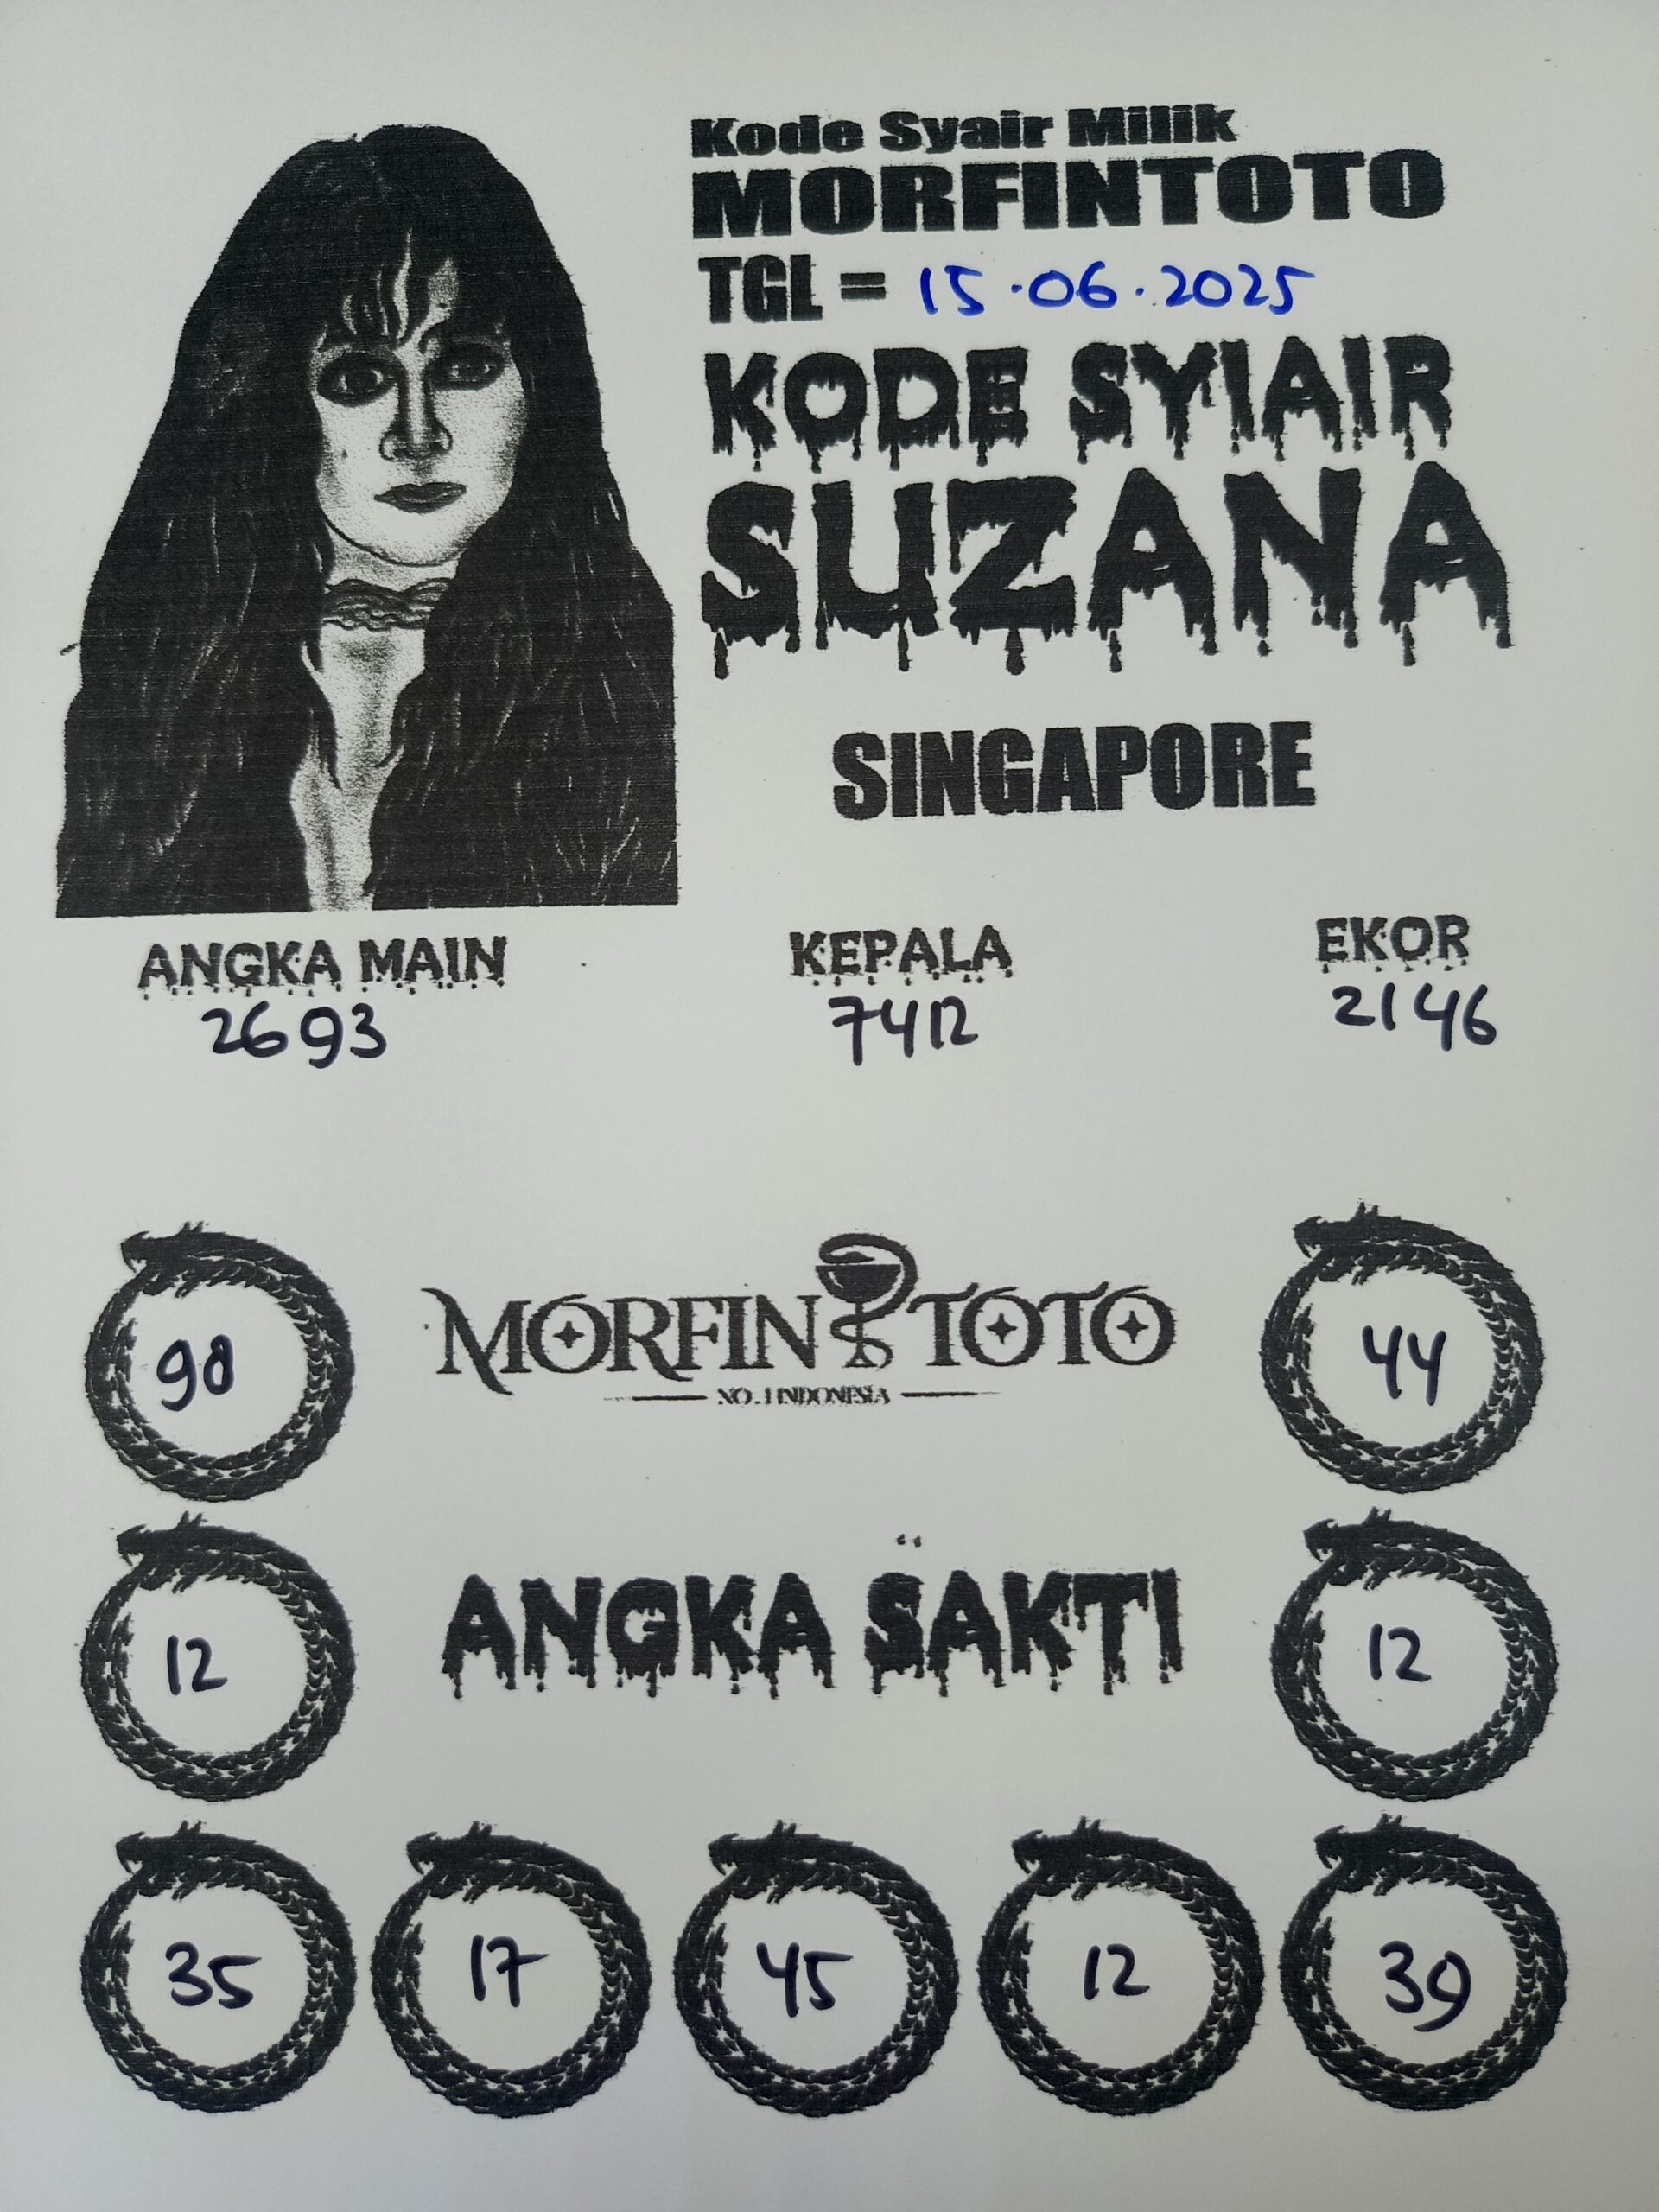 Kode Syair Milik
MORFINTOTO
TGL = 15.06.2025
KODE SYIAIR
SUZANA
SINGAPORE
ANGKA MAIN KEPALA EKOR
2693 7412 2146
98 MORFIN TOTO 44
NO.1 INDONESIA
12 ANGKA SAKTI 12
35 17 45 12 39